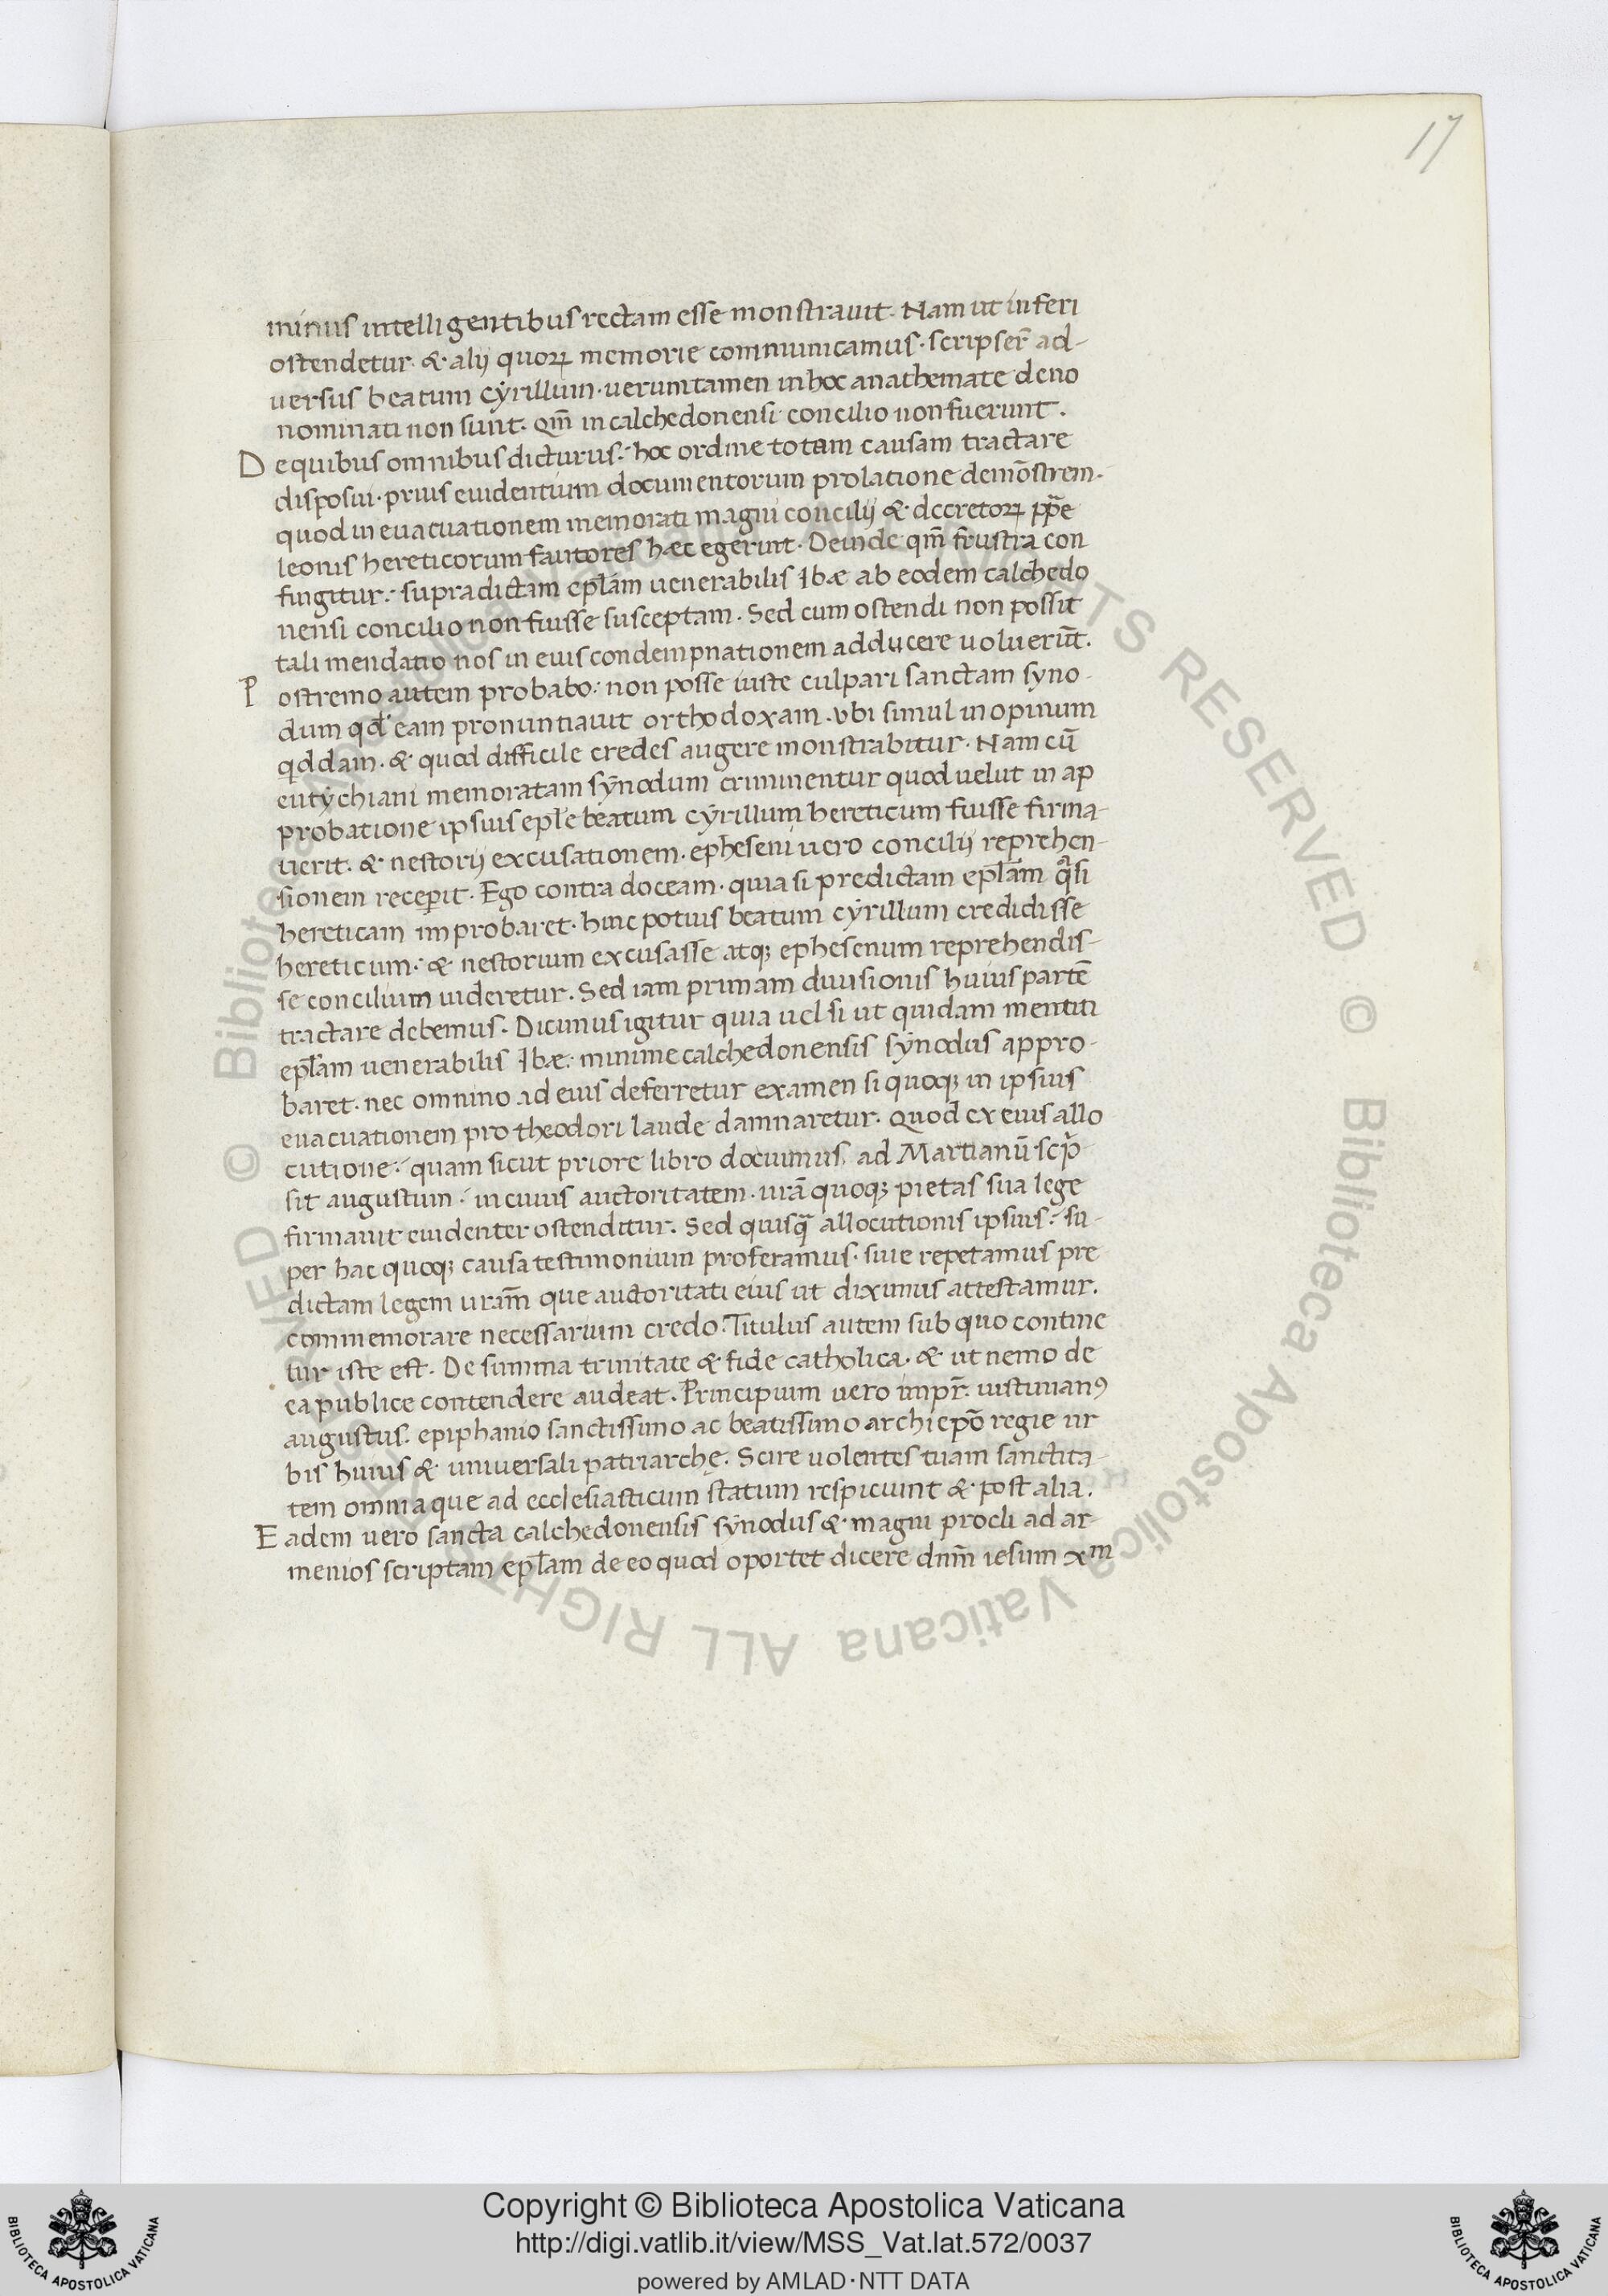 17
minus intelligentibus rectam esse monstravit. Nam ut inferi
ostendetur. & alij quoꝝ memorie communicamus. scripser̄ ad-
versus beatum cẏrillum. veruntamen in hoc anathemate deno
nominati non sunt. qm̄ in calchedonensi concilio non fuerunt.
De quibus omnibus dicturus: hoc ordine totam causam tractare
disposui. prius evidentium documentorum prolatione demōstrem.
quod in evacuationem memorati magni concilij & decretoꝝ pp̄e
leonis hereticorum fautores hæc egerunt. Deinde qm̄ frustra con
fingitur: supradictam ep̄lam venerabilis Ibæ ab eodem calchedo
nensi concilio non fuisse susceptam. Sed cum ostendi non possit
tali mendatio nos in eius condempnationem adducere voluerūt.
Postremo autem probabo: non posse iuste culpari sanctam syno-
dum qd̓ eam pronuntiavit orthodoxam. ubi simul inopinum
qddam. & quod difficile credes augere monstrabitur. Nam cū
eutẏchiani memoratam sẏnodum criminentur quod velut in ap
probatione ipsius ep̄le beatum cẏrillum hereticum fuisse firma-
verit. & nestorij excusationem. epheseni vero concilij reprehen-
sionem receperit. Ego contra doceam. quia si predictam ep̄lam qͣsi
hereticam improbaret. hinc potius beatum cẏrillum credidisse
hereticum: & nestorium excusasse atqꝫ ephesenum reprehendis-
se concilium videretur. Sed iam primam divisionis huius partē
tractare debemus. Dicimus igitur quia vel si ut quidam mentiti
ep̄lam venerabilis Ibæ: minime calchedonensis sẏnodus appro-
baret. nec omnino ad eius deferretur examen si quoqꝫ in ipsius
evacuationem pro theodori laude damnaretur. Quod ex eius allo
cutione: quam sicut priore libro docuimus, ad Martianū scrip
sit augustum: in cuius auctoritatem. vrā quoqꝫ pietas sua lege
firmavit evidenter ostenditur. Sed quisqͣ allocutionis ipsius: su-
per hac quoqꝫ causa testimonium proferamus. sive repetamus pre
dictam legem vram̄ que auctoritati eius ut diximus attestamur.
commemorare necessarium credo. Titulus autem sub quo contine
tur iste est. De summa trinitate & fide catholica. & ut nemo de
ea publice contendere audeat. Principium vero impr̄. iustinianꝰ
augustus. epiphanio sanctissimo ac beatissimo archiepō regie ur
bis huius & universali patriarchę. Scire volentes tuam sanctita-
tem omnia que ad ecclesiasticum statum respiciunt & post alia.
Eadem vero sancta calchedonensis sẏnodus & magni procli ad ar-
menios scriptam ep̄lam de eo quod oportet dicere dnm̄ iesum xᵐ
© Biblioteca Apostolica Vaticana ALL RIGHTS RESERVED
Copyright © Biblioteca Apostolica Vaticana
http://digi.vatlib.it/view/MSS_Vat.lat.572/0037
powered by AMLAD·NTT DATA
BIBLIOTECA APOSTOLICA VATICANA
BIBLIOTECA APOSTOLICA VATICANA